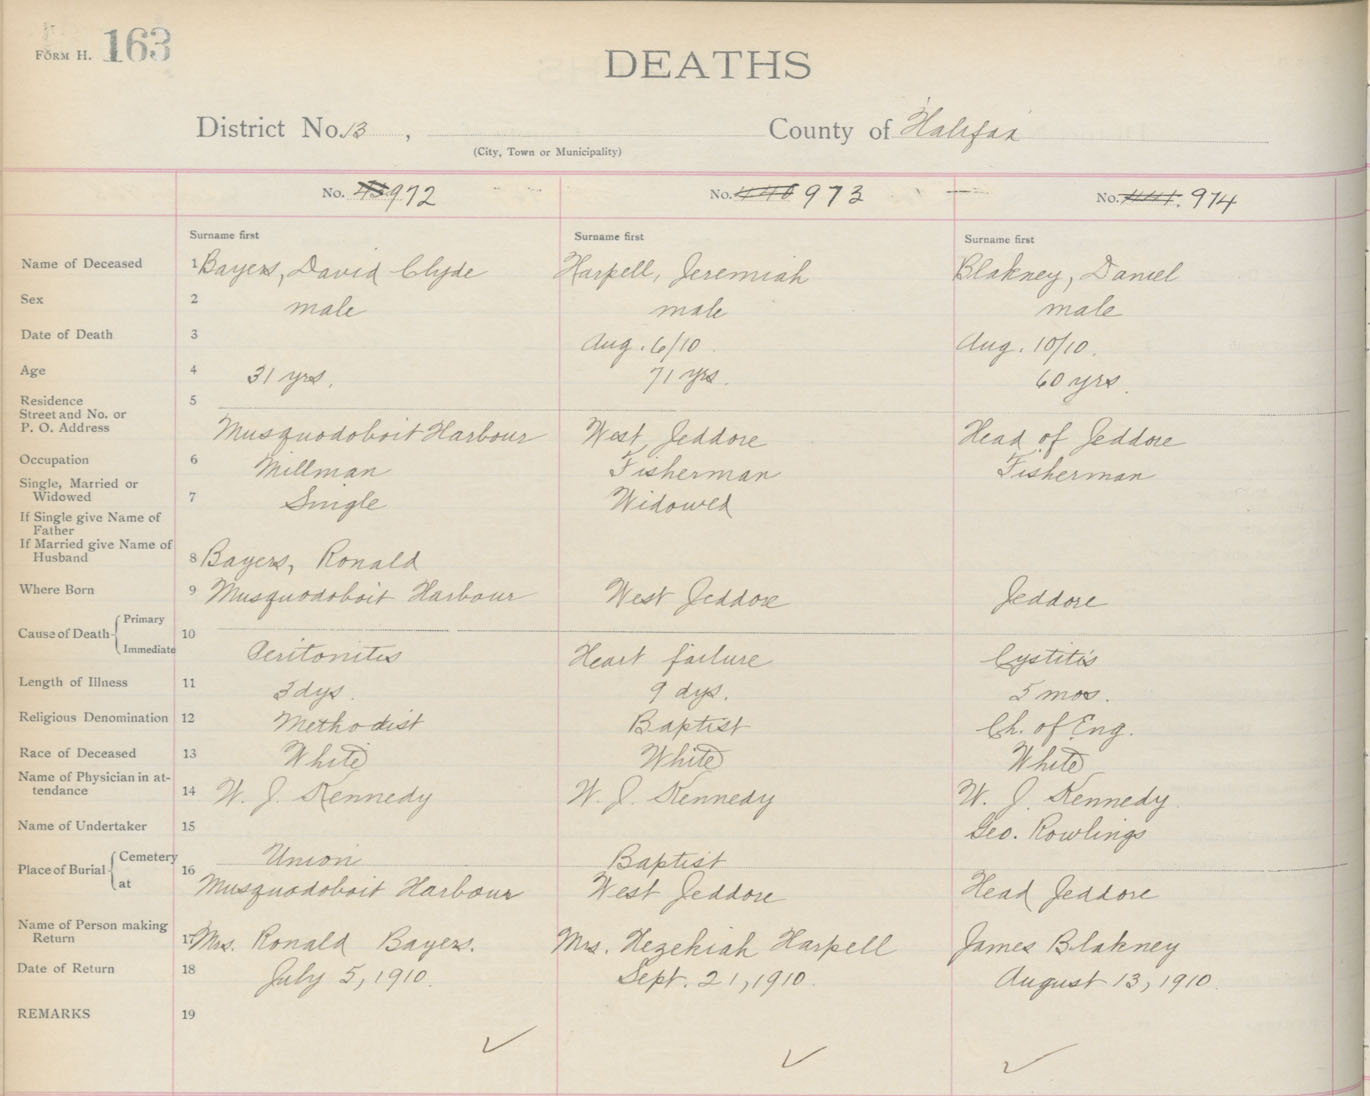 FORM H. 163
DEATHS
District No. 13 , County of Halifax
(City, Town or Municipality)
No. 972 No. 440 973 No. 441. 974
Surname first Surname first Surname first
Name of Deceased 1 Bayers, David Clyde Harpell, Jeremiah Blakney, Daniel
Sex 2 male male male
Date of Death 3 Aug. 6/10. Aug. 10/10.
Age 4 31 yrs. 71 yrs. 60 yrs.
Residence 5
Street and No. or
P. O. Address Musquodoboit Harbour West Jeddore Head of Jeddore
Occupation 6 Millman Fisherman Fisherman
Single, Married or
Widowed 7 Single Widowed
If Single give Name of
Father
If Married give Name of
Husband 8 Bayers, Ronald
Where Born 9 Musquodoboit Harbour West Jeddore Jeddore
Cause of Death Primary 10
Immediate Peritonitis Heart failure Cystitis
Length of Illness 11 3 dys. 9 dys. 5 mos.
Religious Denomination 12 Methodist Baptist Ch. of Eng.
Race of Deceased 13 White White White
Name of Physician in at-
tendance 14 W. J. Kennedy W. J. Kennedy W. J. Kennedy
Name of Undertaker 15 Geo. Rowlings
Place of Burial Cemetery 16 Union Baptist
at Musquodoboit Harbour West Jeddore Head Jeddore
Name of Person making
Return 17 Mrs. Ronald Bayers. Mrs. Hezekiah Harpell James Blakney
Date of Return 18 July 5, 1910. Sept. 21, 1910. August 13, 1910.
REMARKS 19